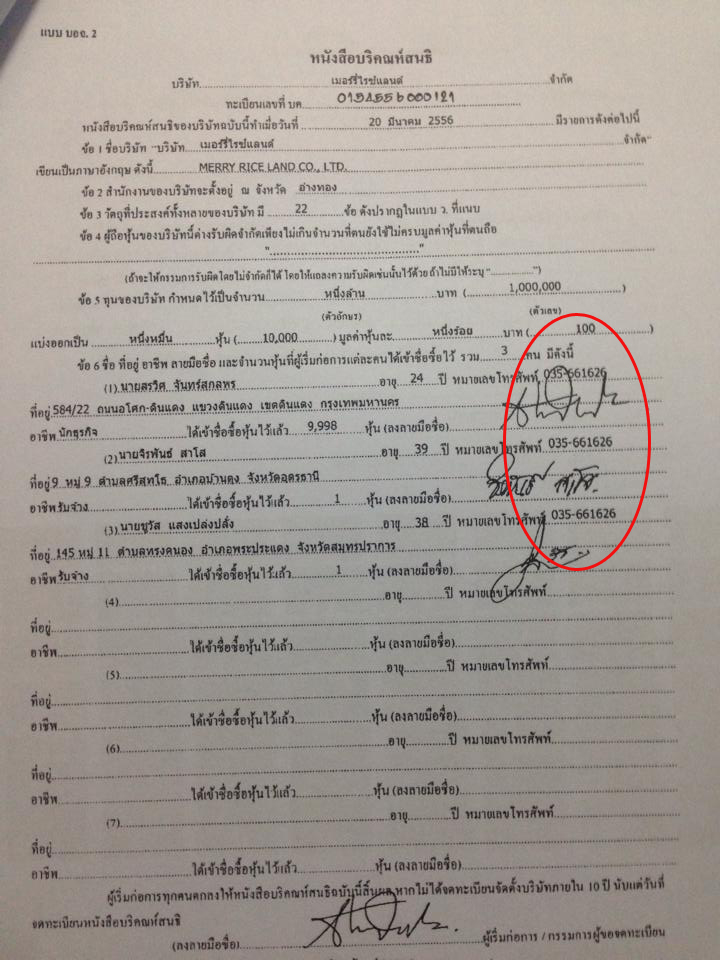 แบบ บอจ. 2
หนังสือบริคณห์สนธิ
บริษัท......เมอร์รี่ไรซ์แลนด์......จำกัด
ทะเบียนเลขที่ บค. 0154556000121
หนังสือบริคณห์สนธิของบริษัทฉบับนี้ทำเมื่อวันที่ 20 มีนาคม 2556 มีรายการดังต่อไปนี้
ข้อ 1 ชื่อบริษัท "บริษัท เมอร์รี่ไรซ์แลนด์ จำกัด"
เขียนเป็นภาษาอังกฤษ ดังนี้ MERRY RICE LAND CO., LTD.
ข้อ 2 สำนักงานของบริษัทจะตั้งอยู่ ณ จังหวัด อ่างทอง
ข้อ 3 วัตถุที่ประสงค์ทั้งหลายของบริษัท มี 22 ข้อ ดังปรากฏในแบบ ว. ที่แนบ
ข้อ 4 ผู้ถือหุ้นของบริษัทนี้ต่างรับผิดจำกัดเพียงไม่เกินจำนวนที่ตนยังใช้ไม่ครบมูลค่าหุ้นที่ตนถือ
"......................................"
(ถ้าจะให้กรรมการรับผิดโดยไม่จำกัดก็ได้ โดยให้แถลงความรับผิดเช่นนั้นไว้ด้วย ถ้าไม่มีให้ระบุ "...............")
ข้อ 5 ทุนของบริษัท กำหนดไว้เป็นจำนวน หนึ่งล้าน บาท (1,000,000)
(ตัวอักษร) (ตัวเลข)
แบ่งออกเป็น หนึ่งหมื่น หุ้น (10,000) มูลค่าหุ้นละ หนึ่งร้อย บาท (100)
ข้อ 6 ชื่อ ที่อยู่ อาชีพ ลายมือชื่อ และจำนวนหุ้นที่ผู้เริ่มก่อการแต่ละคนได้เข้าชื่อซื้อไว้ รวม 3 คน มีดังนี้
(1) นายสรวิศ จันทร์สกลพร อายุ 24 ปี หมายเลขโทรศัพท์ 035-661626
ที่อยู่ 584/22 ถนนอโศก-ดินแดง แขวงดินแดง เขตดินแดง กรุงเทพมหานคร
อาชีพ นักธุรกิจ ได้เข้าชื่อซื้อหุ้นไว้แล้ว 9,998 หุ้น (ลงลายมือชื่อ)
(2) นายจิรพันธ์ สาโส อายุ 39 ปี หมายเลขโทรศัพท์ 035-661626
ที่อยู่ 9 หมู่ 9 ตำบลศรีสุทโธ อำเภอบ้านดุง จังหวัดอุดรธานี
อาชีพ รับจ้าง ได้เข้าชื่อซื้อหุ้นไว้แล้ว 1 หุ้น (ลงลายมือชื่อ)
(3) นายชูวัส แสงเปล่งปลั่ง อายุ 38 ปี หมายเลขโทรศัพท์ 035-661626
ที่อยู่ 145 หมู่ 11 ตำบลทรงคนอง อำเภอพระประแดง จังหวัดสมุทรปราการ
อาชีพ รับจ้าง ได้เข้าชื่อซื้อหุ้นไว้แล้ว 1 หุ้น (ลงลายมือชื่อ)
(4) อายุ ปี หมายเลขโทรศัพท์
ที่อยู่
อาชีพ ได้เข้าชื่อซื้อหุ้นไว้แล้ว หุ้น (ลงลายมือชื่อ)
(5) อายุ ปี หมายเลขโทรศัพท์
ที่อยู่
อาชีพ ได้เข้าชื่อซื้อหุ้นไว้แล้ว หุ้น (ลงลายมือชื่อ)
(6) อายุ ปี หมายเลขโทรศัพท์
ที่อยู่
อาชีพ ได้เข้าชื่อซื้อหุ้นไว้แล้ว หุ้น (ลงลายมือชื่อ)
(7) อายุ ปี หมายเลขโทรศัพท์
ที่อยู่
อาชีพ ได้เข้าชื่อซื้อหุ้นไว้แล้ว หุ้น (ลงลายมือชื่อ)
ผู้เริ่มก่อการทุกคนตกลงให้หนังสือบริคณห์สนธิฉบับนี้สิ้นผล หากไม่ได้จดทะเบียนจัดตั้งบริษัทภายใน 10 ปี นับแต่วันที่
จดทะเบียนหนังสือบริคณห์สนธิ
(ลงลายมือชื่อ) ผู้เริ่มก่อการ / กรรมการผู้ขอจดทะเบียน